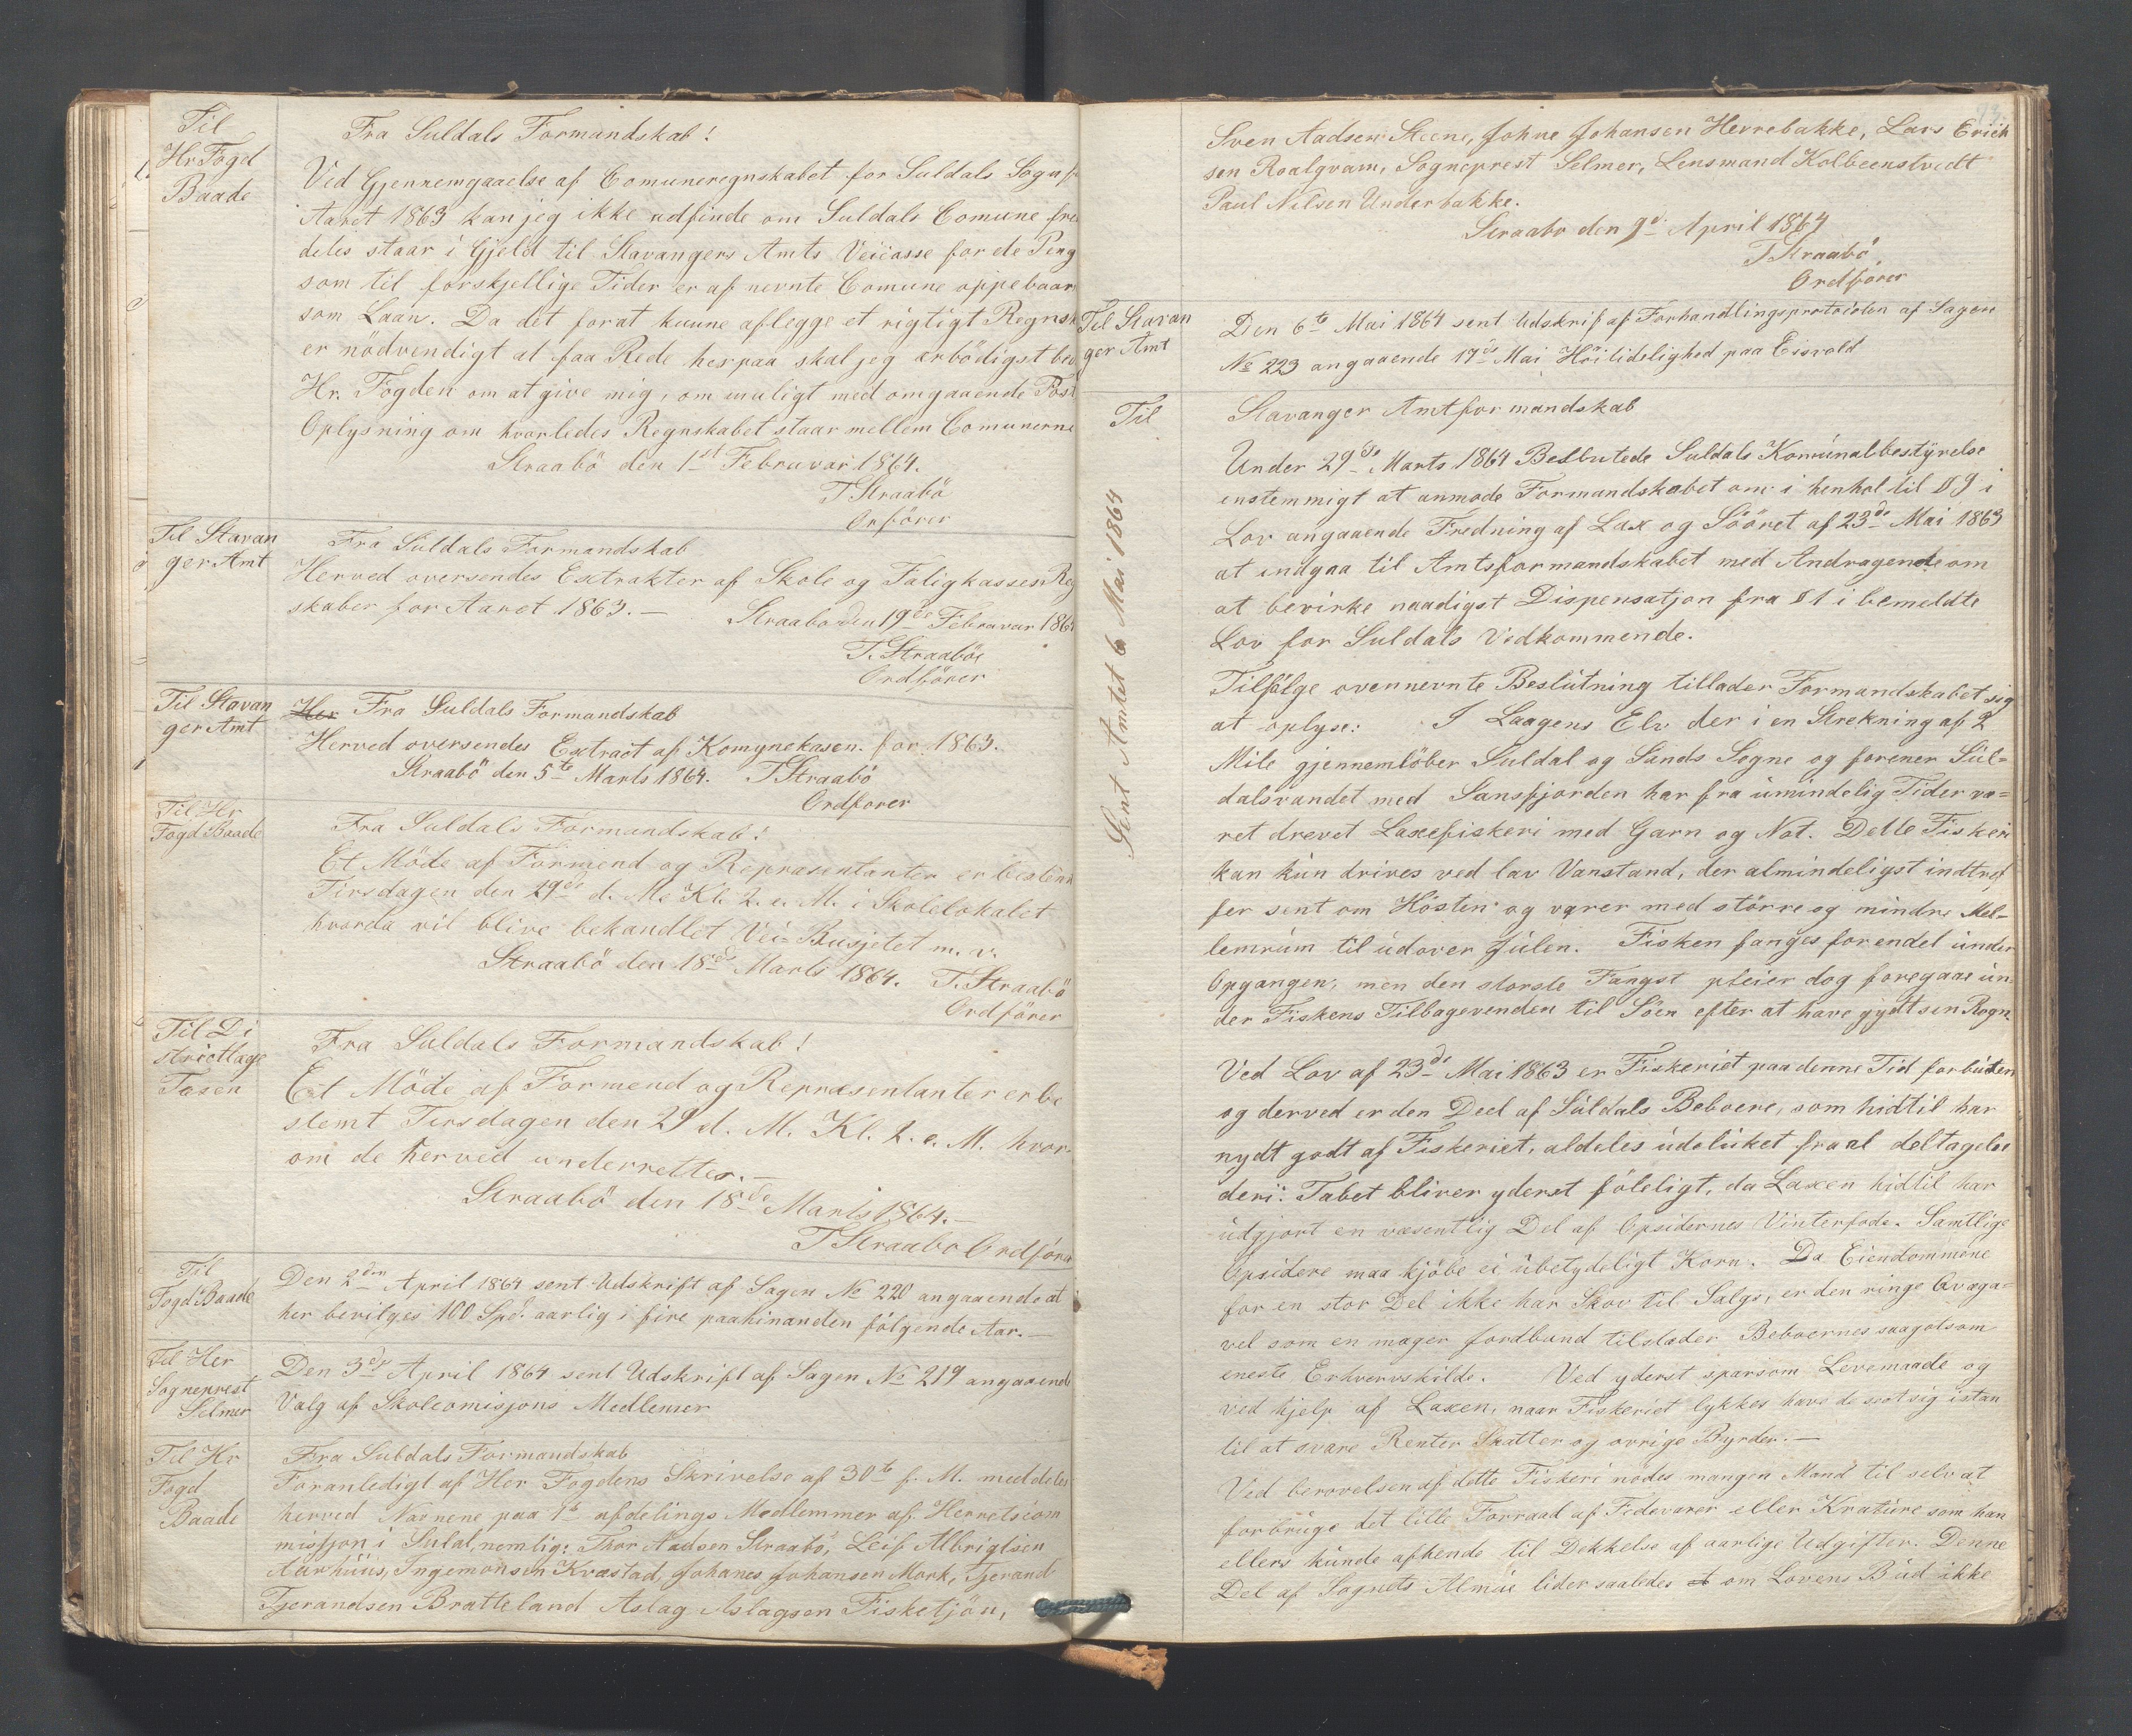 Til
Hr Fogd
Baade
Fra Suldals Formandskab!
Ved Gjennemgaaelse af Comuneregnskabet for Suldals Sogn f
Aaret 1863 kan jeg ikke udfinde om Suldals Comune frem
deles staar i Gjeld til Stavangers Amts Veicasse for de Peng
som til forskjellige Tider er af nevnte Comune oppebaar
som Laan. Da det forat kunne aflegge et rigtigt Regnsk
er nödvendigt at faa Rede herpaa skal jeg ærbödigst bed
Hr. Fogden om at give mig, om muligt med omgaaende Post
Oplysning om hvorledes Regnskabet staar mellem Comunerne
Straabö den 1st Februvar 1864.
T Straabö
Orförer
Til Stavan
ger Amt
Fra Suldals Formandskab
Herved oversendes Extrakter af Skole og Fatigkassens Reg
skaber for Aaret 1863. —
Straabo den 19de Februvar 1864
T. Straaböe
Ordförer
Til Stavan
ger Amt
Her Fra Suldals Formandskab
Herved oversendes Extract af Komynekasen. for 1863.
Straabö den 5te Marts 1864. T Straabö
Ordforer
Til Hr
Fogd Baade
Fra Suldals Formandskab!
Et Möde af Formend og Representanter er bestemt
Tirsdagen den 29de d. M. Kl. 2. e. M. i Skolelokalet
hvorda vil blive behandlet Vei-Busjetet m. v.
Straabö den 18de Marts 1864. T. Straabö
Ordförer
Til Di
strictlage
Tosen
Fra Suldals Formandskab!
Et Möde af Formend og Repræsentanter er be
stemt Tirsdagen den 29 d. M. Kl. 2. e. M. hvor-
om de herved underrettes. —
Straabö den 18de Marts 1864. —
T Straabo Ordförer
Til
Fogd Baade
Den 2den April 1864 sent Udskrift af Sagen No 220 angaaende at
her bevilges 100 Spd. aarlig i fire paahinanden fölgende Aar. —
Til Her
Sogneprest
Selmer
Den 3die April 1864 sent Udskrift af Sagen No 219 angaaende
Valg af Skolcomisjons Medlemer
Til Hr
Fogd
Baade
Fra Suldals Formandskab
Foranledigt af Her Fogdens Skrivelse af 30te f. M. meddeles
herved Navnene paa 1te afdelings Medlemmer af Herretscom
misjon i Sulal, nemlig: Thor Aadsen Straabö, Leif Albrigtsen
Aarhuus, Ingemonsen Kvæstad, Johanes Johansen Mork, Tjerand
Tjerandsen Bratteland Aslag Aslagsen Fisketjön,
Sven Aadsen Steene, Johne Johansen Herrebakke, Lars Erich
sen Roalqvam, Sogneprest Selmer, Lensmand Kolbeenstvedt
Paul Nilsen Underbakke.
Straabo den 9d April 1864
T Straabö,
Ordförer
Til Stavan
ger Amt
Den 6te Mai 1864 sent Udskrif af Forhandlingsprotocolen af Sagen
No 223 angaaende 17de Mai Höitidelighed paa Eisvold
Til
Stavanger Amtformandskab
Sent Amtet 6 Mai 1864
Under 29de Marts 1864 Beslutede Suldals Komunalbestyrelse
enstemmigt at anmode Formandskabet om i henhol til § 9 i
Lov angaaende Fredning af Lax og Sööret af 23de Mai 1863
at indgaa til Amtsformandskabet med Andragende om
at bevirke naadigst Dispensatjon fra § 1 i bemeldte
Lov for Suldals Vedkommende.
Tilfölge ovennevnte Beslutning tillader Formandskabet sig
at oplyse: I Laagens Elv der i en Strekning af 2
Mile gjennemlöber Suldal og Sands Sogne og forener Sul=
dalsvandet med Sansfjorden har fra umindelig Tider væ=
ret drevet Laxefiskeri med Garn og Not. Dette Fiskeri
kan kun drives ved lav Vanstand, der almindeligst indtref
fer sent om Hösten og varer med större og mindre Mel-
lemrum til udover Julen. Fisken fanges for endel under
Opgangen, men den storste Fangst pleier dog foregaae un-
der Fiskens Tilbagevenden til Söen efter at have gydt sen Rogn.
Ved Lov af 23de Mai 1863 er Fiskeriet paa denne Tid forbuten
og derved er den Deel af Suldals Beboere, som hidtil har
nydt godt af Fiskeriet, aldeles udelüket fra al deltagelse
deri. Tabet bliver yderst föleligt, da Laxen hidtil har
udgjort en væsentlig Del af Opsidernes Vinterfode. Samtlige
Opsidere maa kjöbe ei ubetydeligt Korn. Da Eiendommene
for en stor Del ikke har Skov til Salgs, er den ringe Qvæga=
vel som en mager Jordbund tilstæder Beboernes saagotsom
eneste Erhvervskilde. Ved yderst sparsom Levemaade og
ved hjelp af Laxen, naar Fiskeriet lykkes have de seet sig istan
til at svare Renter Skatter og ovrige Byrder. —
Ved berovelsen af dette Fiskeri nödes mangen Mand til selv at
forbruge det lille Forraad af Fedevarer eller Kreatüre som han
ellers kunde afhende til Dekkelse af aarlige Udgifter. Denne
Del af Sognets Almue lider saaledes at om Lovens Bud ikke